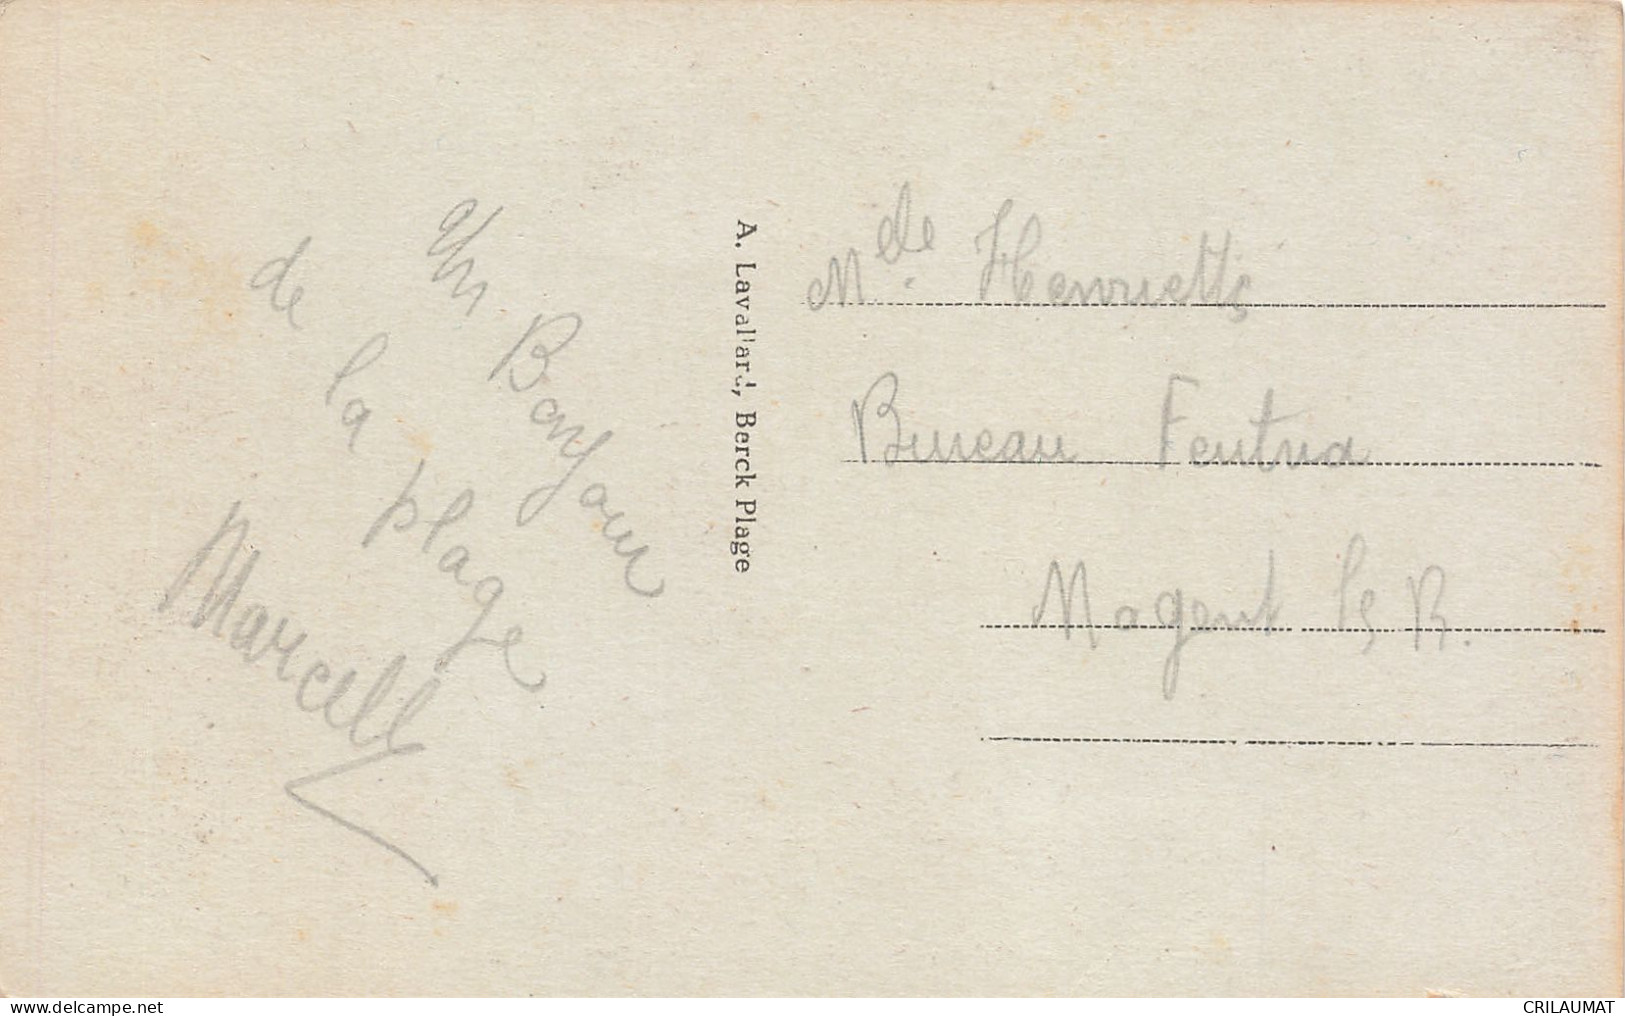 Un Bonjour
de la plage
Marcelle
A. Lavallard, Berck Plage
Mde. Henriette
Bureau Central
Nogent le R.
www.delcampe.net
CRILAUMAT